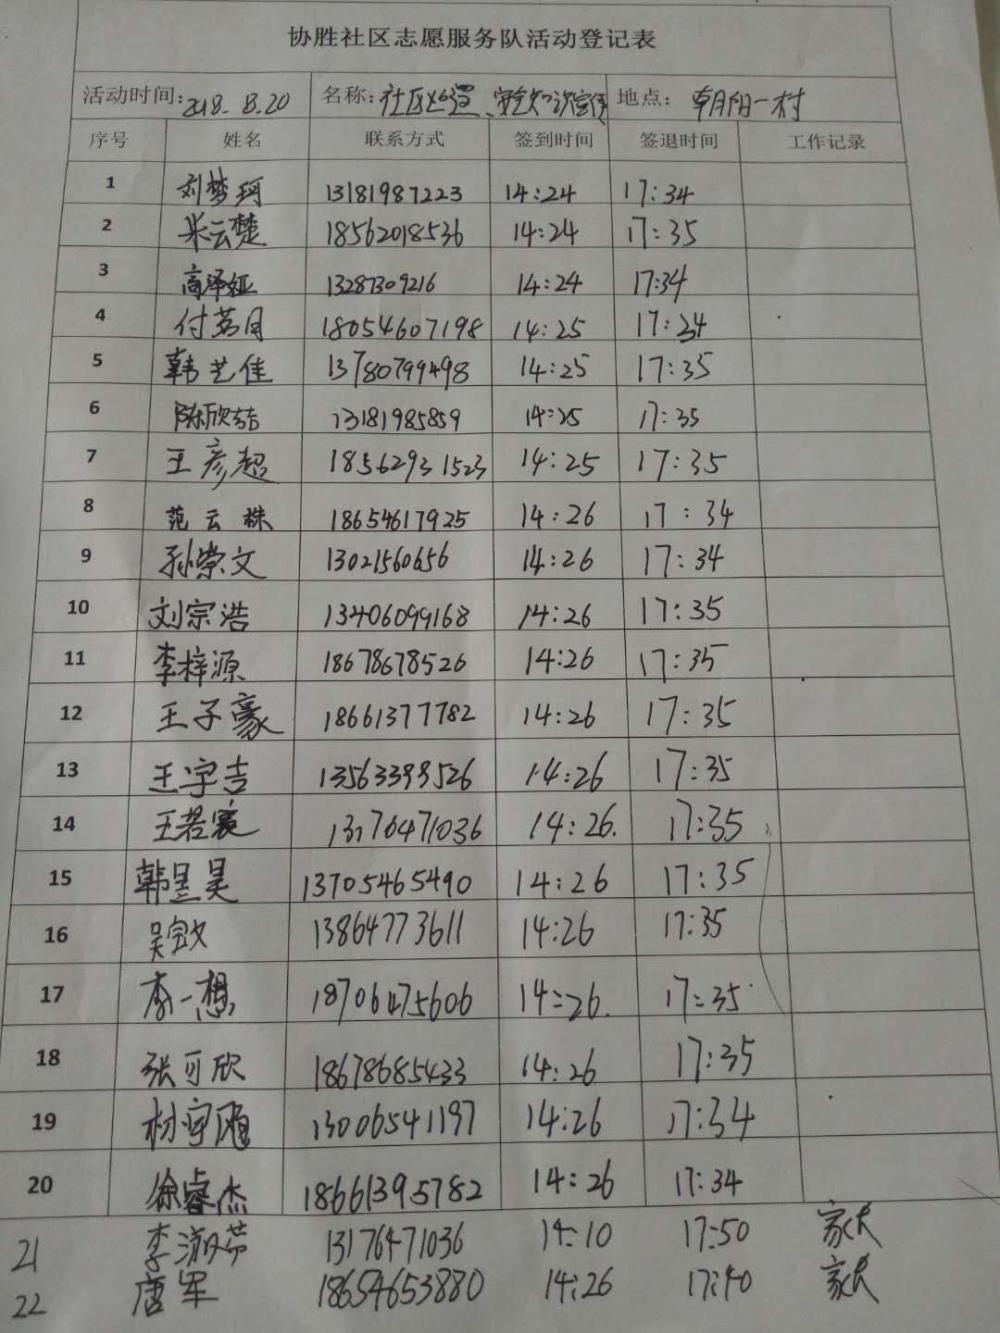 协胜社区志愿服务队活动登记表
活动时间:2018.8.20 名称:社区 安全知识宣传 地点:朝阳一村
序号 姓名 联系方式 签到时间 签退时间 工作记录
1 刘梦珂 13181987223 14:24 17:34
2 米云楚 18562018536 14:24 17:35
3 高泽娅 13287309216 14:24 17:34
4 付茗月 18054607198 14:25 17:24
5 韩艺佳 13780799498 14:25 17:35
6 陈欣喆 13181985859 14:25 17:35
7 王彦超 18562931523 14:25 17:35
8 范云株 18654617925 14:26 17:34
9 孙崇文 13021560656 14:26 17:34
10 刘宗浩 13406099168 14:26 17:35
11 李梓源 18678678526 14:26 17:35
12 王子豪 18661377782 14:26 17:35
13 王宇吉 13563399526 14:26 17:35
14 王若宸 13176471036 14:26. 17:35
15 韩昱昊 13705465490 14:26 17:35
16 吴 13864773611 14:26 17:35
17 李一想 18706475606 14:26. 17:35
18 张可欣 18678685433 14:26 17:35
19 13006541197 14:26 17:34
20 徐睿杰 18661395782 14:26 17:34
21 李淑芬 13176471036 14:10 17:50 家长
22 唐军 18654653880 14:26 17:40 家长